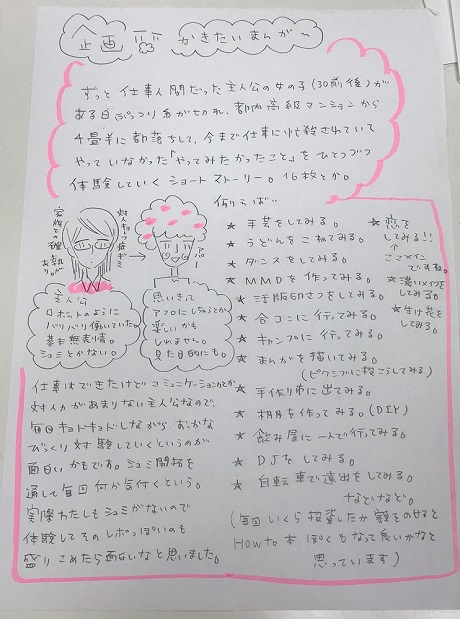 企画 かきたいまんが〜
ずっと仕事人間だった主人公の女の子(30前後)が
ある日ぷっつり糸が切れ、都内高級マンションから
4畳半に都落ちして、今まで仕事に忙殺されていて
やっていなかった「やってみたかったこと」をひとつづつ
体験していくショートストーリー。16枚とか。
例えば…
家族の確執あり。
対人キョーフ症ギミ
アパー
主人公
ロボットのように
バリバリ働いていた。
基本無表情。
シュミとかない。
思いきって
アフロにしちゃうとか
楽しいかも
しれません。
見た目的にも。
★ 手芸をしてみる。
★ うどんをこねてみる。
★ ダンスをしてみる。
★ MMDを作ってみる。
★ 活版印さつをしてみる。
★ 合コンに行ってみる。
★ キャンプに行ってみる。
★ まんがを描いてみる。
(ピクシブに投こうしてみる)
★ 手作り市に出てみる。
★ 棚を作ってみる。(DIY)
★ 飲み屋に一人で行ってみる。
★ DJをしてみる。
★ 自転車で遠出をしてみる。
などなど。
★ 恋を
してみる!!
ここメイン
ですね。
★ 濃いメイクを
してみる。
★ 生け花を
してみる。
(毎回いくら投資したか額をのせると
How to 本ぽくもなって良いかなと
思っています)
仕事はできたけどコミュニケーションとか
対人力があまりない主人公なので、
毎回キョドキョドしながら、おっかな
びっくり対験していくというのが
面白いかもです。シュミ開拓を
通して毎回何か気付くという。
実際わたしもシュミがないので
体験してそのレポっぽいのも
盛りこめたら面白いなと思いました。